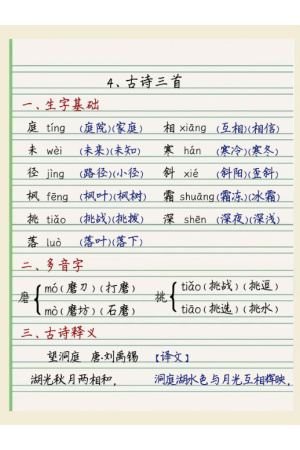 4、古诗三首
一、生字基础
庭 tíng (庭院)(家庭) 相 xiāng (互相)(相信)
未 wèi (未来)(未知) 寒 hán (寒冷)(寒冬)
径 jìng (路径)(小径) 斜 xié (斜阳)(歪斜)
枫 fēng (枫叶)(枫树) 霜 shuāng (霜冻)(冰霜)
挑 tiǎo (挑战)(挑拨) 深 shēn (深夜)(深浅)
落 luò (落叶)(落下)
二、多音字
磨 mó(磨刀)(打磨) 挑 tiǎo(挑战)(挑逗)
mò(磨坊)(石磨) tiāo(挑选)(挑水)
三、古诗释义
望洞庭 唐.刘禹锡 【译文】
湖光秋月两相和, 洞庭湖水色与月光互相辉映,